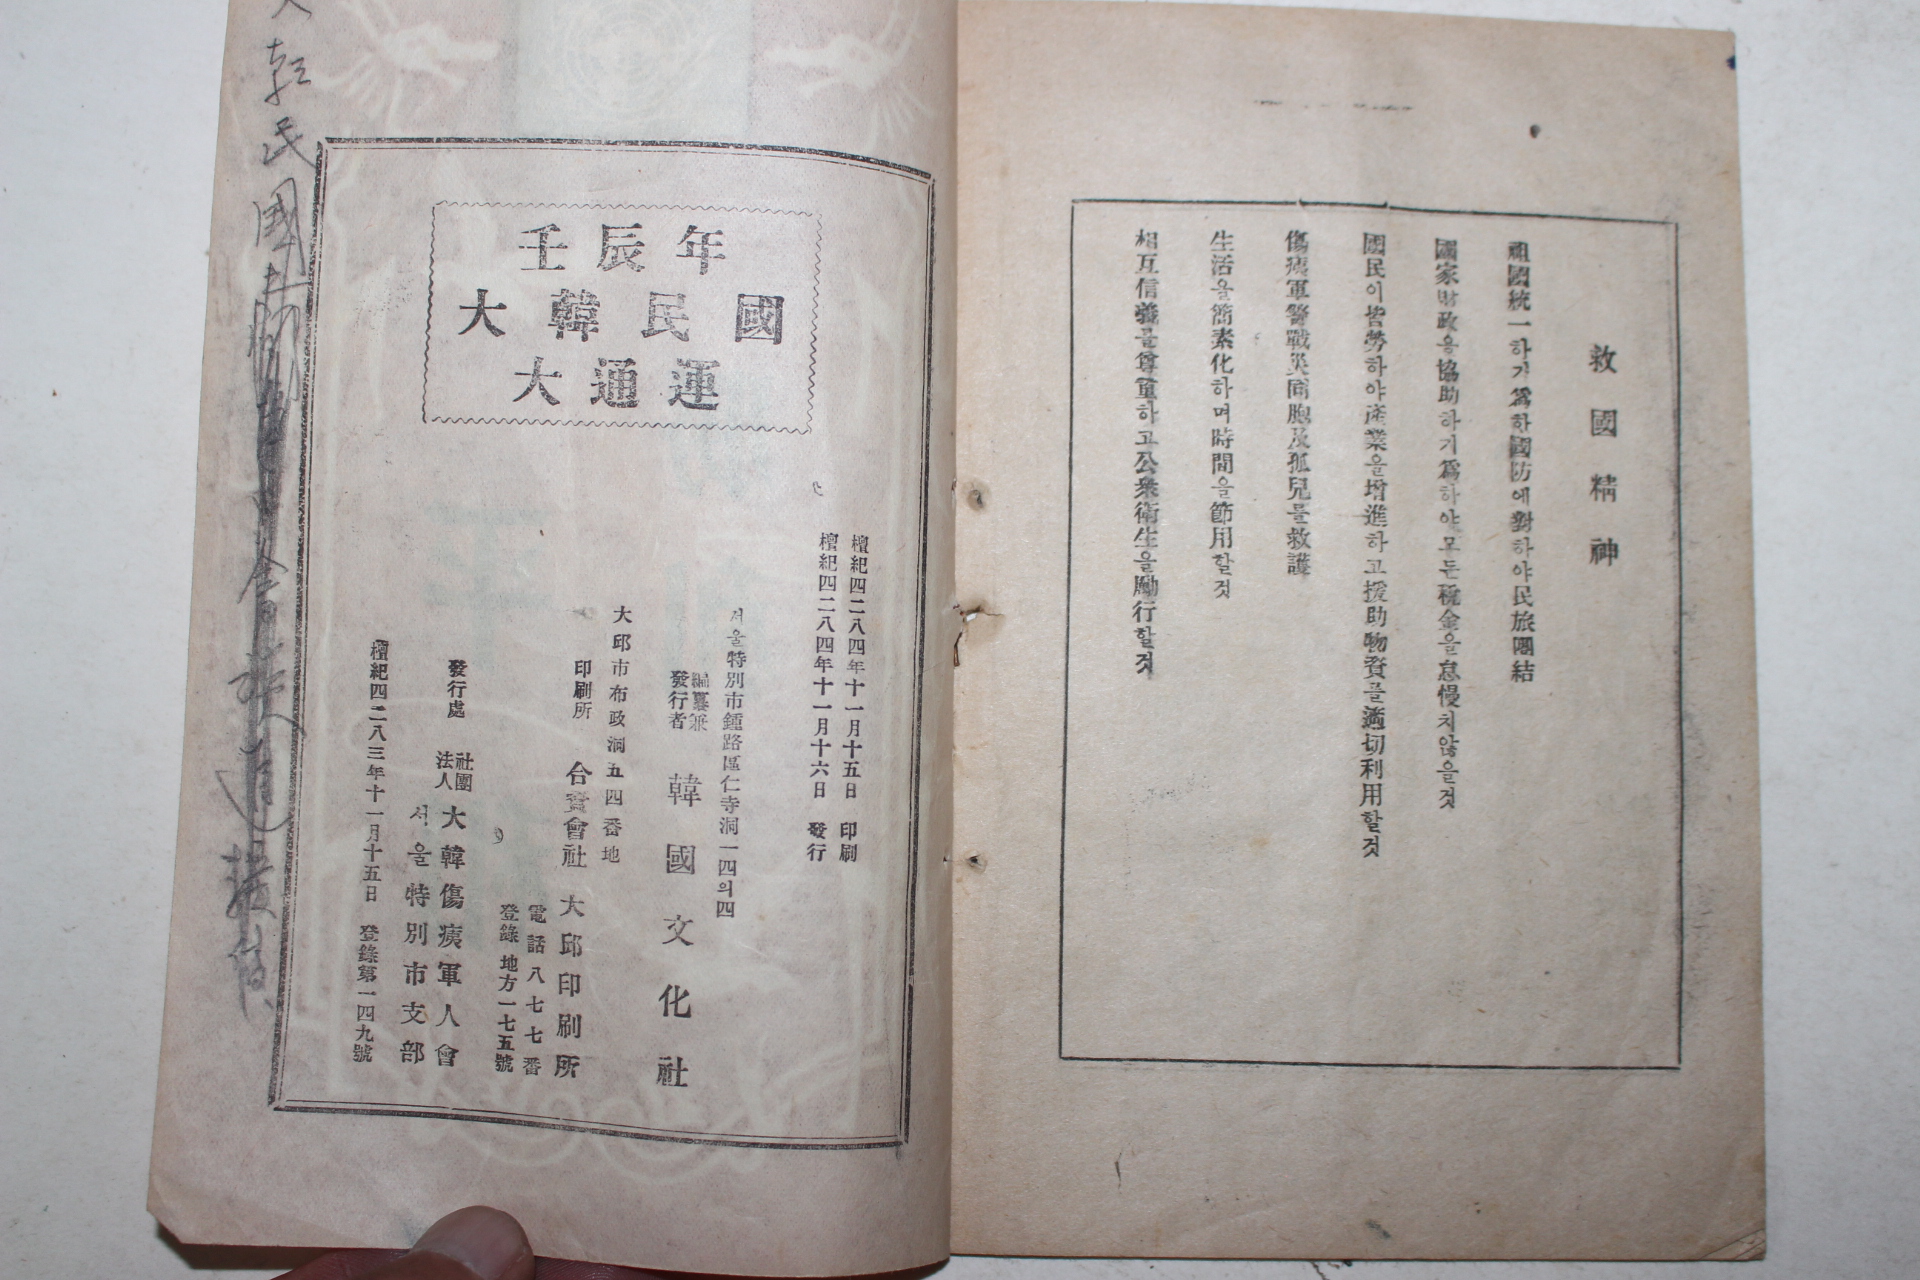 救國精神
祖國統一하기爲한國防에對하야民族團結
國家財政을協助하기爲하야모든稅金을怠慢치않을것
國民이皆勞하야產業을增進하고援助物資를適切利用할것
傷痍軍警戰災同胞及孤兒를救護
生活을簡素化하며時間을節用할것
相互信義를尊重하고公衆衛生을勵行할것
壬辰年
大韓民國
大通運
檀紀四二八四年十一月十五日 印刷
檀紀四二八四年十一月十六日 發行
서울特別市鍾路區仁寺洞一四의四
編纂兼
發行者 韓國文化社
大邱市布政洞五四番地
印刷所 合資會社 大邱印刷所
電話八七七番
登錄地方一七五號
發行處 社團法人 大韓傷痍軍人會
서울特別市支部
檀紀四二八三年十一月十五日 登錄第一四九號